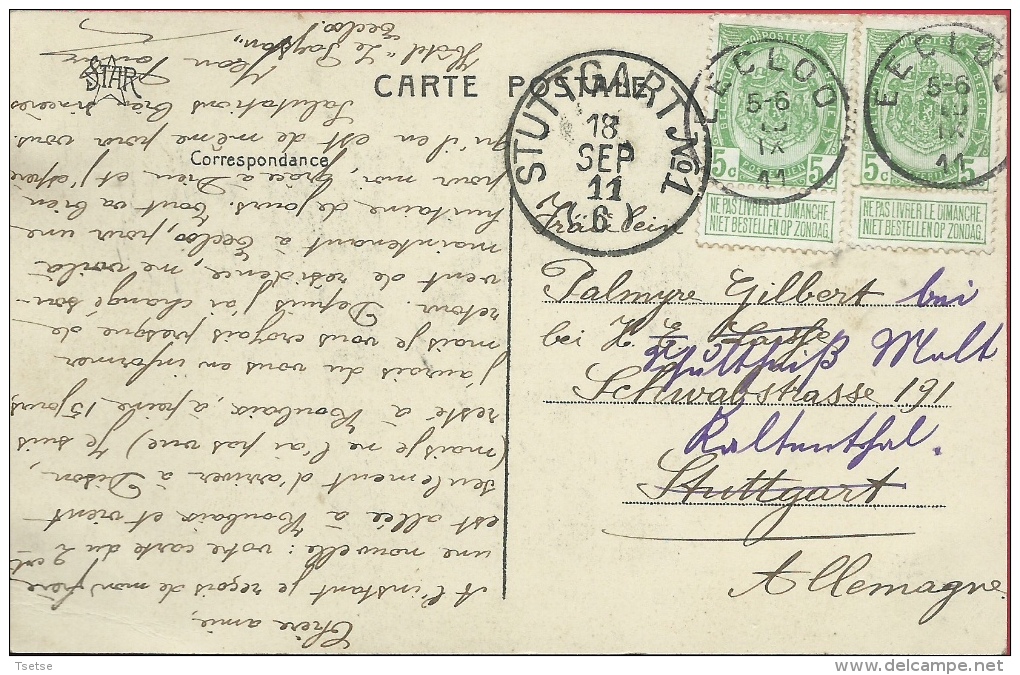 STAR
CARTE POSTALE
Correspondance
STUTTGART No1
18
SEP
11
6
EECLOO
5-6
IX
11
EECLOO
5-6
IX
11
POSTES
5c 5c
NE PAS LIVRER LE DIMANCHE
NIET BESTELLEN OP ZONDAG.
POSTES
5c 5c
NE PAS LIVRER LE DIMANCHE.
NIET BESTELLEN OP ZONDAG.
Fräulein
Palmyre Gilbert bei
bei H.
Schultheiß Malt
Schwabstrasse 191
Kaltenthal.
Stuttgart
Allemagne.
Chère amie,
A l'instant je reçois de mon frère
une nouvelle : votre carte du 2 crt
est allée à Roubaix et vient
seulement d'arriver à Dison.
(mais je ne l'ai pas vue) Je suis
resté à Roubaix, à peine 15 jours
j'aurais du vous en informer
mais je vous croyais presque de
retour. Depuis j'ai changé sou-
vent de résidence, me voilà
maintenant à Eecloo, pour une
huitaine de jours. Tout va bien
pour moi, grâce à Dieu et j'espère
qu'il en est de même pour vous.
Salutations bien sincères
Hôtel "Le Paysan"
Eecloo.
Tsetse
www.delcampe.net